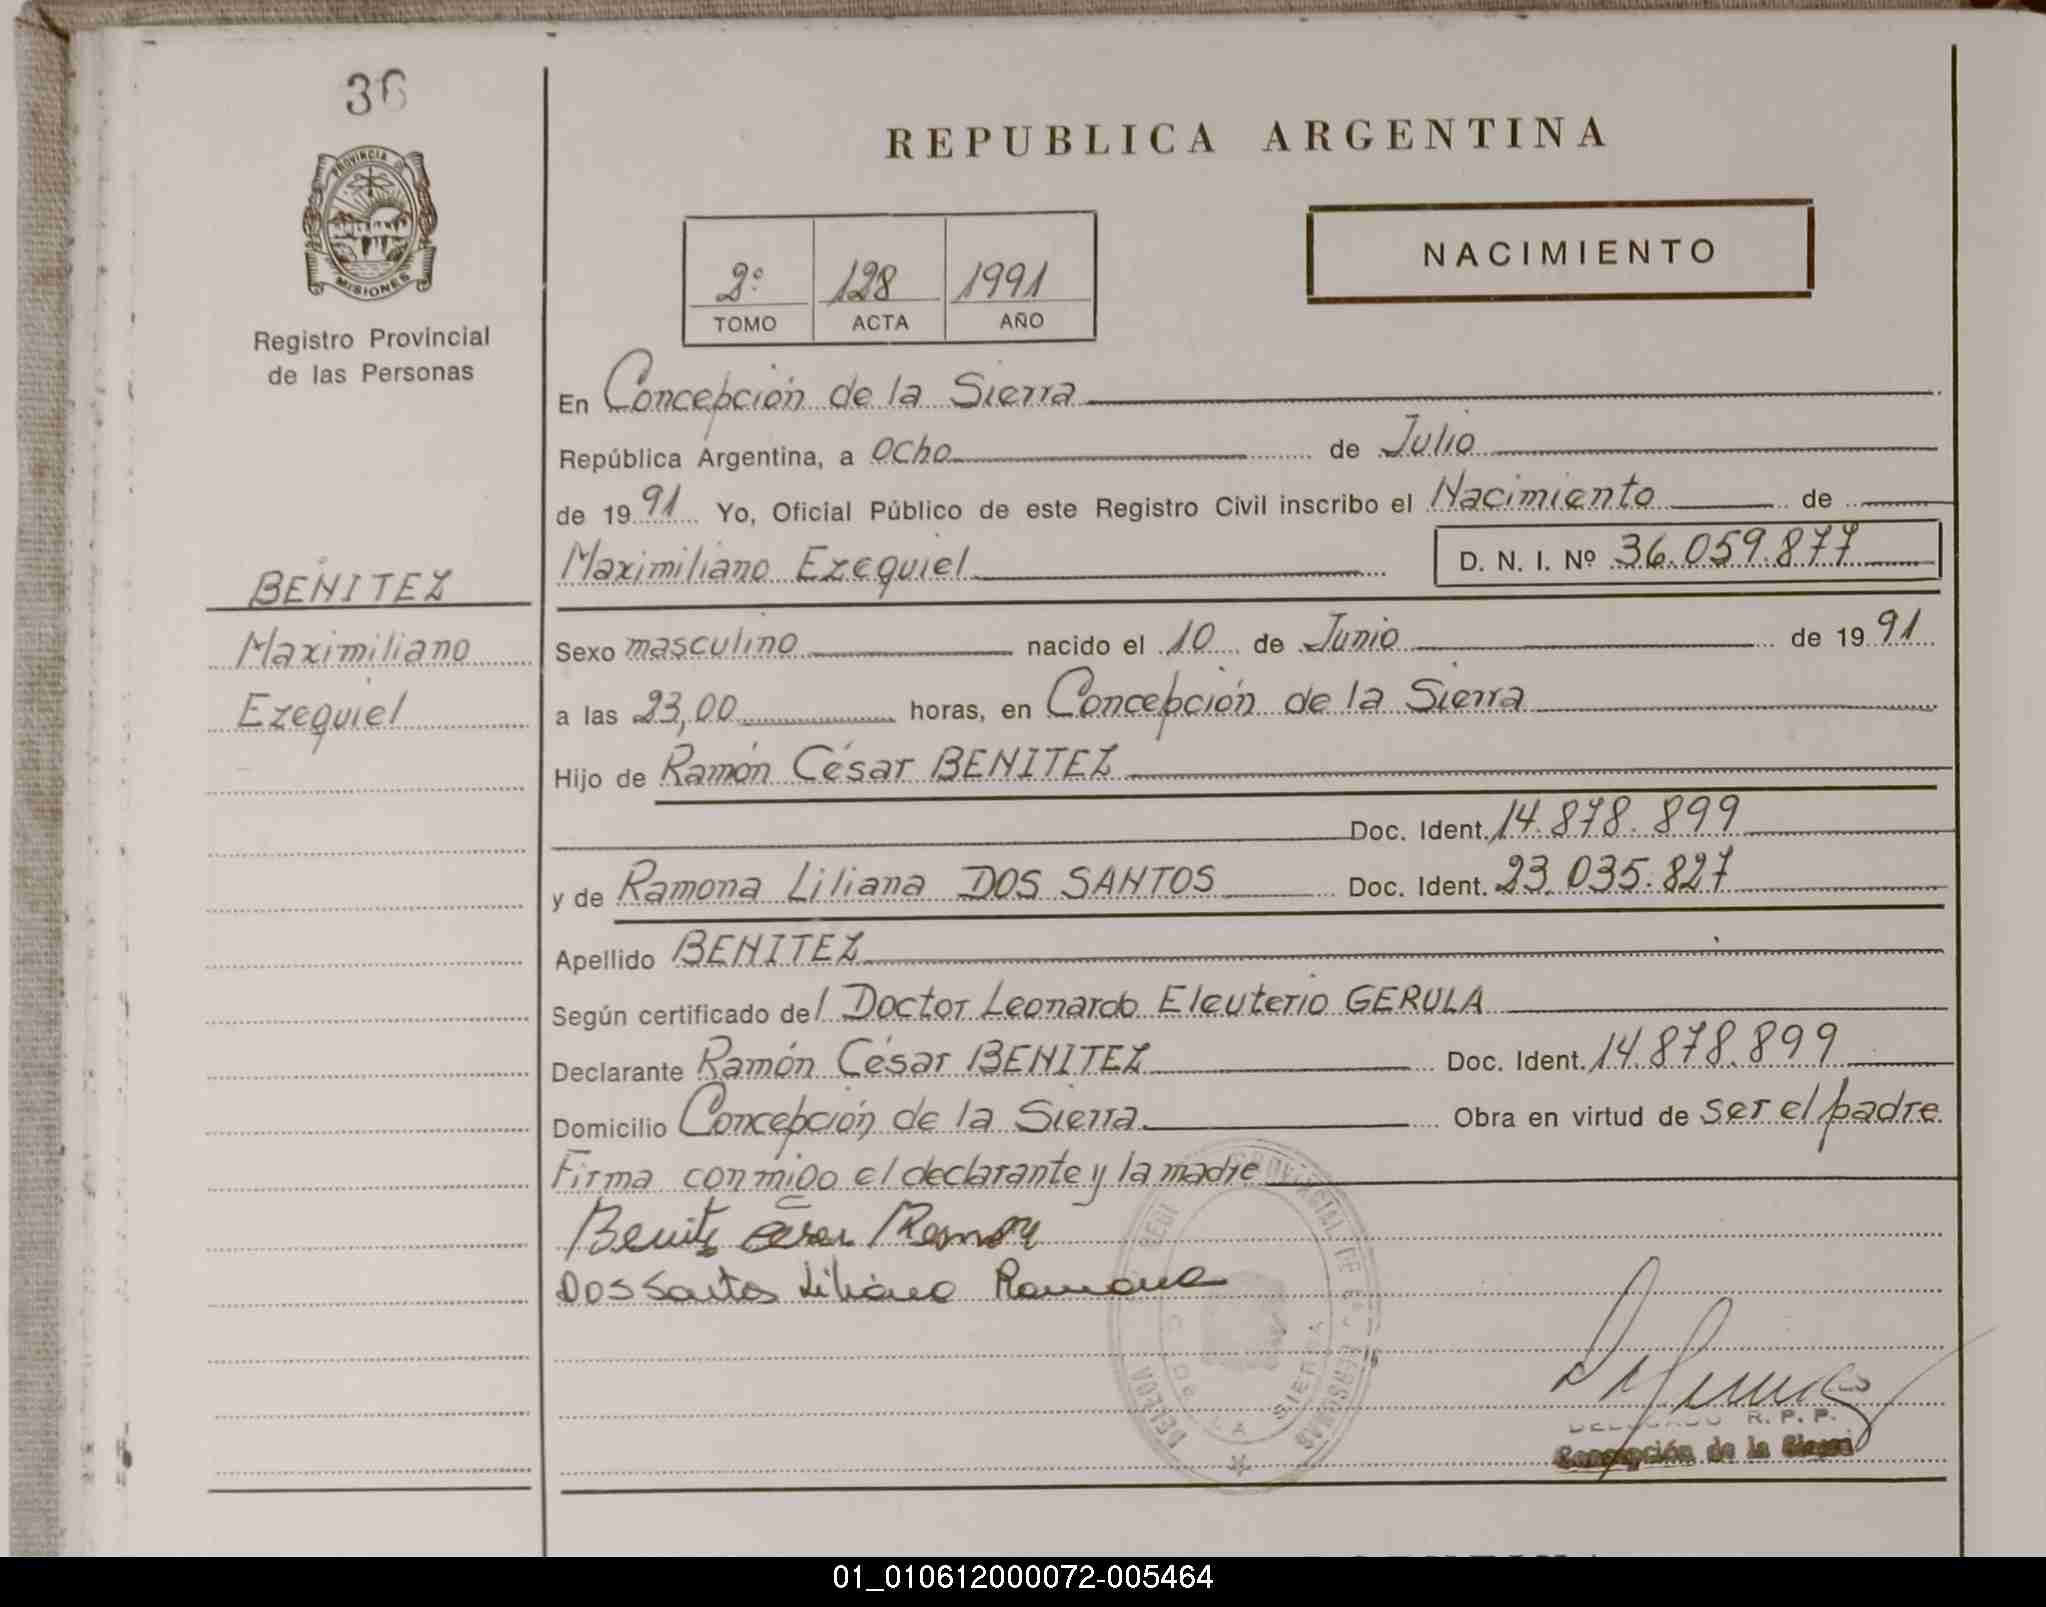 36
PROVINCIA DE
MISIONES
Registro Provincial
de las Personas
REPUBLICA ARGENTINA
NACIMIENTO
2º 128 1991
TOMO ACTA AÑO
En Concepción de la Sierra
República Argentina, a ocho de Julio
de 1991 Yo, Oficial Público de este Registro Civil inscribo el Nacimiento de
Maximiliano Ezequiel D. N. I. Nº 36.059.877
BENITEZ
Maximiliano
Ezequiel
Sexo masculino nacido el 10 de Junio de 1991
a las 23,00 horas, en Concepción de la Sierra
Hijo de Ramón César BENITEZ
Doc. Ident. 14.878.899
y de Ramona Liliana DOS SANTOS Doc. Ident. 23.035.827
Apellido BENITEZ
Según certificado del Doctor Leonardo Eleuterio GERULA
Declarante Ramón César BENITEZ Doc. Ident. 14.878.899
Domicilio Concepción de la Sierra Obra en virtud de ser el padre
Firma conmigo el declarante y la madre
Benitez Cesar Ramon
Dos Santos Liliana Ramona
R. P. P.
Concepción de la Sierra
01_010612000072-005464